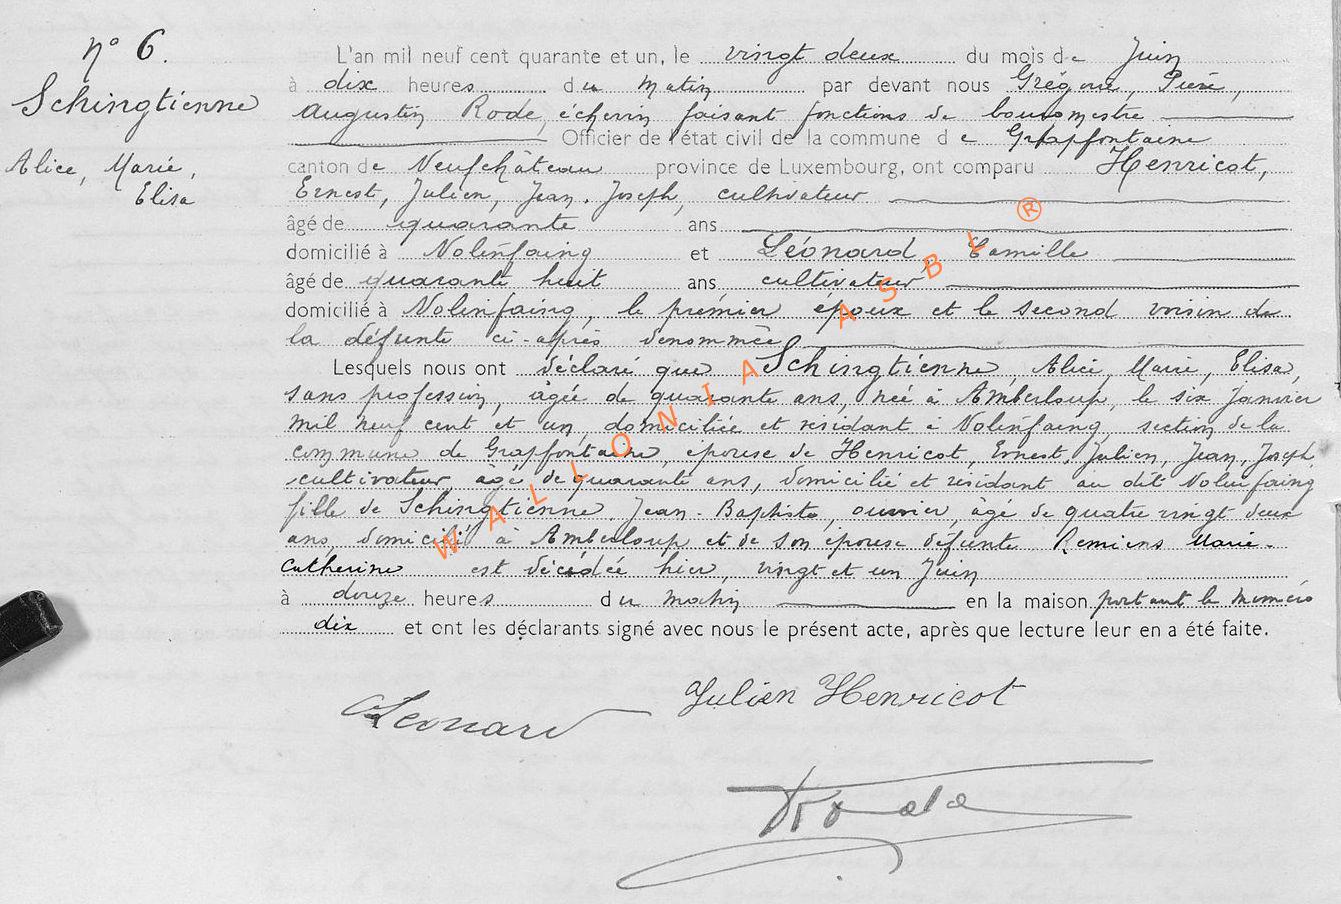 n° 6.
Schingtienne
Alice, Marie,
Elisa
L'an mil neuf cent quarante et un, le vingt deux du mois de Juin
à dix heures du matin par devant nous Grégoire, Pierre,
Augustin Rode, échevin faisant fonctions de bourgmestre
Officier de l'état civil de la commune de Grapfontaine
canton de Neufchâteau province de Luxembourg, ont comparu Henricot,
Ernest, Julien, Jean, Joseph, cultivateur
âgé de quarante ans
domicilié à Nolinfaing et Léonard, Camille
âgé de quarante huit ans cultivateur
domicilié à Nolinfaing, le premier époux et le second voisin de
la défunte ci-après dénommée
Lesquels nous ont déclaré que Schingtienne, Alice, Marie, Elisa,
sans profession, âgée de quarante ans, née à Amberloup, le six Janvier
mil neuf cent et un, domiciliée et résidant à Nolinfaing, section de la
commune de Grapfontaine, épouse de Henricot, Ernest, Julien, Jean, Joseph
cultivateur âgé de quarante ans, domicilié et résidant au dit Nolinfaing
fille de Schingtienne, Jean-Baptiste, ouvrier, âgé de quatre vingt deux
ans, domicilié à Amberloup et de son épouse défunte Remiens Marie-
Catherine est décédée hier, vingt et un Juin
à douze heures du matin en la maison portant le numéro
dix et ont les déclarants signé avec nous le présent acte, après que lecture leur en a été faite.
CLeonard
Julien Henricot
Rode
WALLONIA ASBL ®